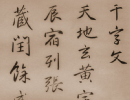 千字文
天地玄黃宇
辰宿列張
藏閏餘成